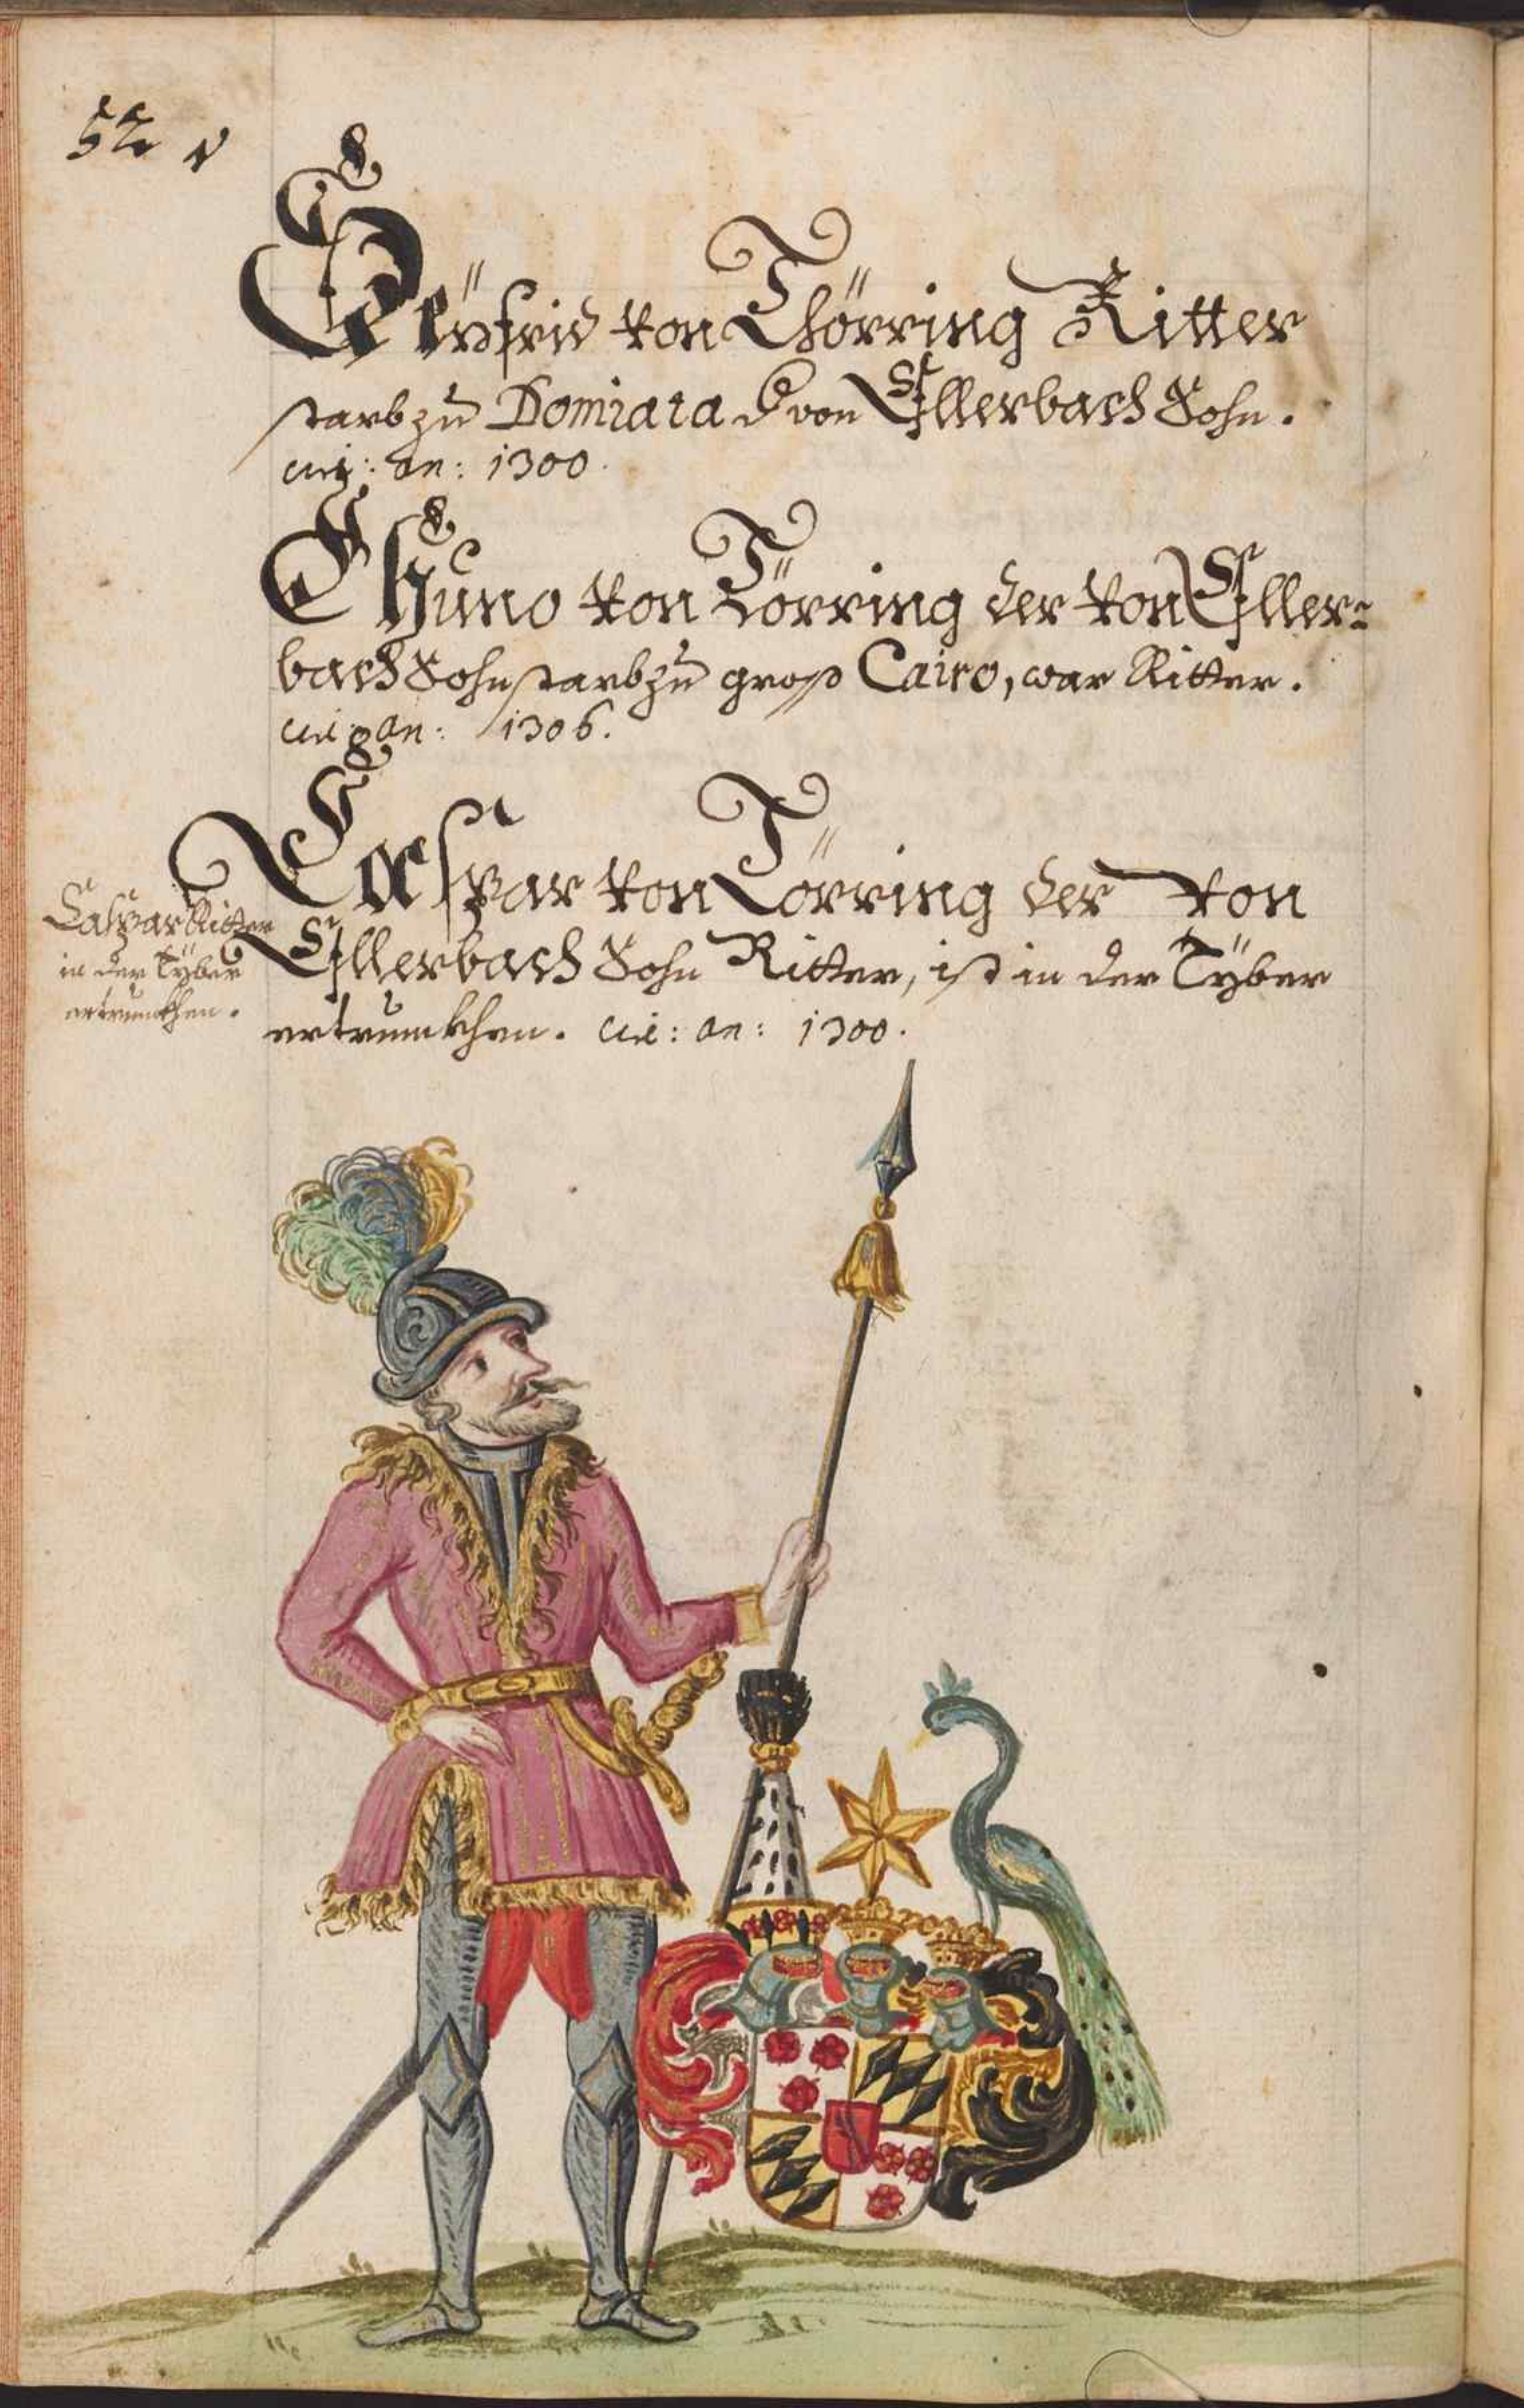 52 v
Seÿfrid von Thörring Ritter
starb zu Domiata d von Ellerbach Sohn.
circ: an: 1300.
Chuno von Törring der von Eller=
bach Sohn starb zu groß Cairo, war Ritter.
circ: an: 1306.
Caspar von Törring der von
Caspar Ritter
in der Tÿber
ertrunkhen.
Ellerbach Sohn Ritter, ist in der Tÿber
ertrunkhen. circ: an: 1300.